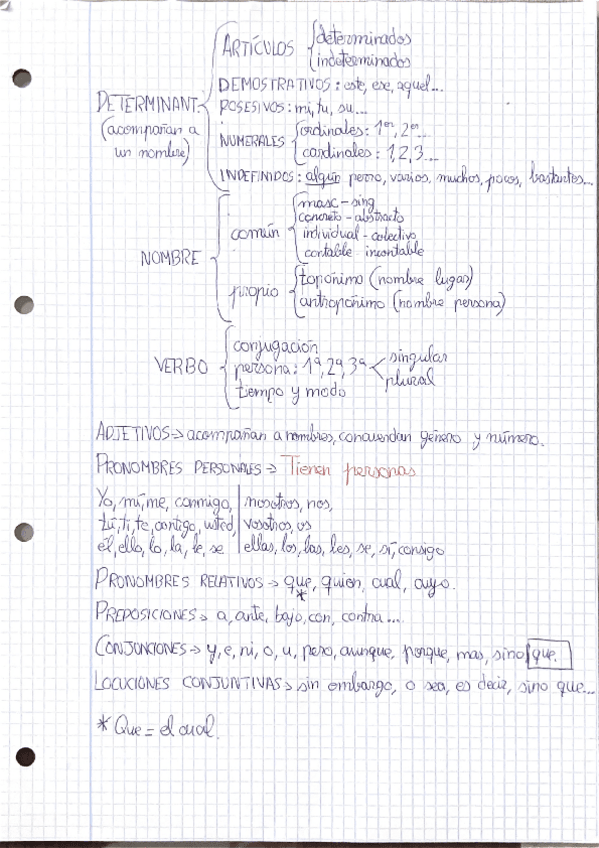 ARTÍCULOS determinados
indeterminados
DEMOSTRATIVOS: este, ese, aquel...
DETERMINANT
POSESIVOS: mi, tu, su...
(acompañan a
un nombre)
NUMERALES ordinales: 1er, 2º...
cardinales: 1, 2, 3...
INDEFINIDOS: algún perro, varios, muchos, pocos, bastantes...
NOMBRE
común
masc-sing
concreto-abstracto
individual-colectivo
contable-incontable
propio
topónimo (nombre lugas)
antropónimo (nombre persona)
VERBO
conjugación
persona: 1ª, 2ª, 3ª singular
plural
tiempo y modo
ADJETIVOS→ acompañan a nombres, concuerdan género y número.
PRONOMBRES PERSONALES→ Tienen personas
Yo, mí, me, conmigo, nosotros, nos,
tú, ti, te, contigo, usted, vosotros, os
él, ello, lo, la, le, se ellas, los, las, les, se, sí, consigo
PRONOMBRES RELATIVOS→ que, quien, cual, cuyo.
*
PREPOSICIONES→ a, ante, bajo, con, contra...
CONJUNCIONES→ y, e, ni, o, u, pero, aunque, porque, mas, sino, que.
LOCUCIONES CONJUNTIVAS→ sin embargo, o sea, es decir, sino que...
* Que = el cual.